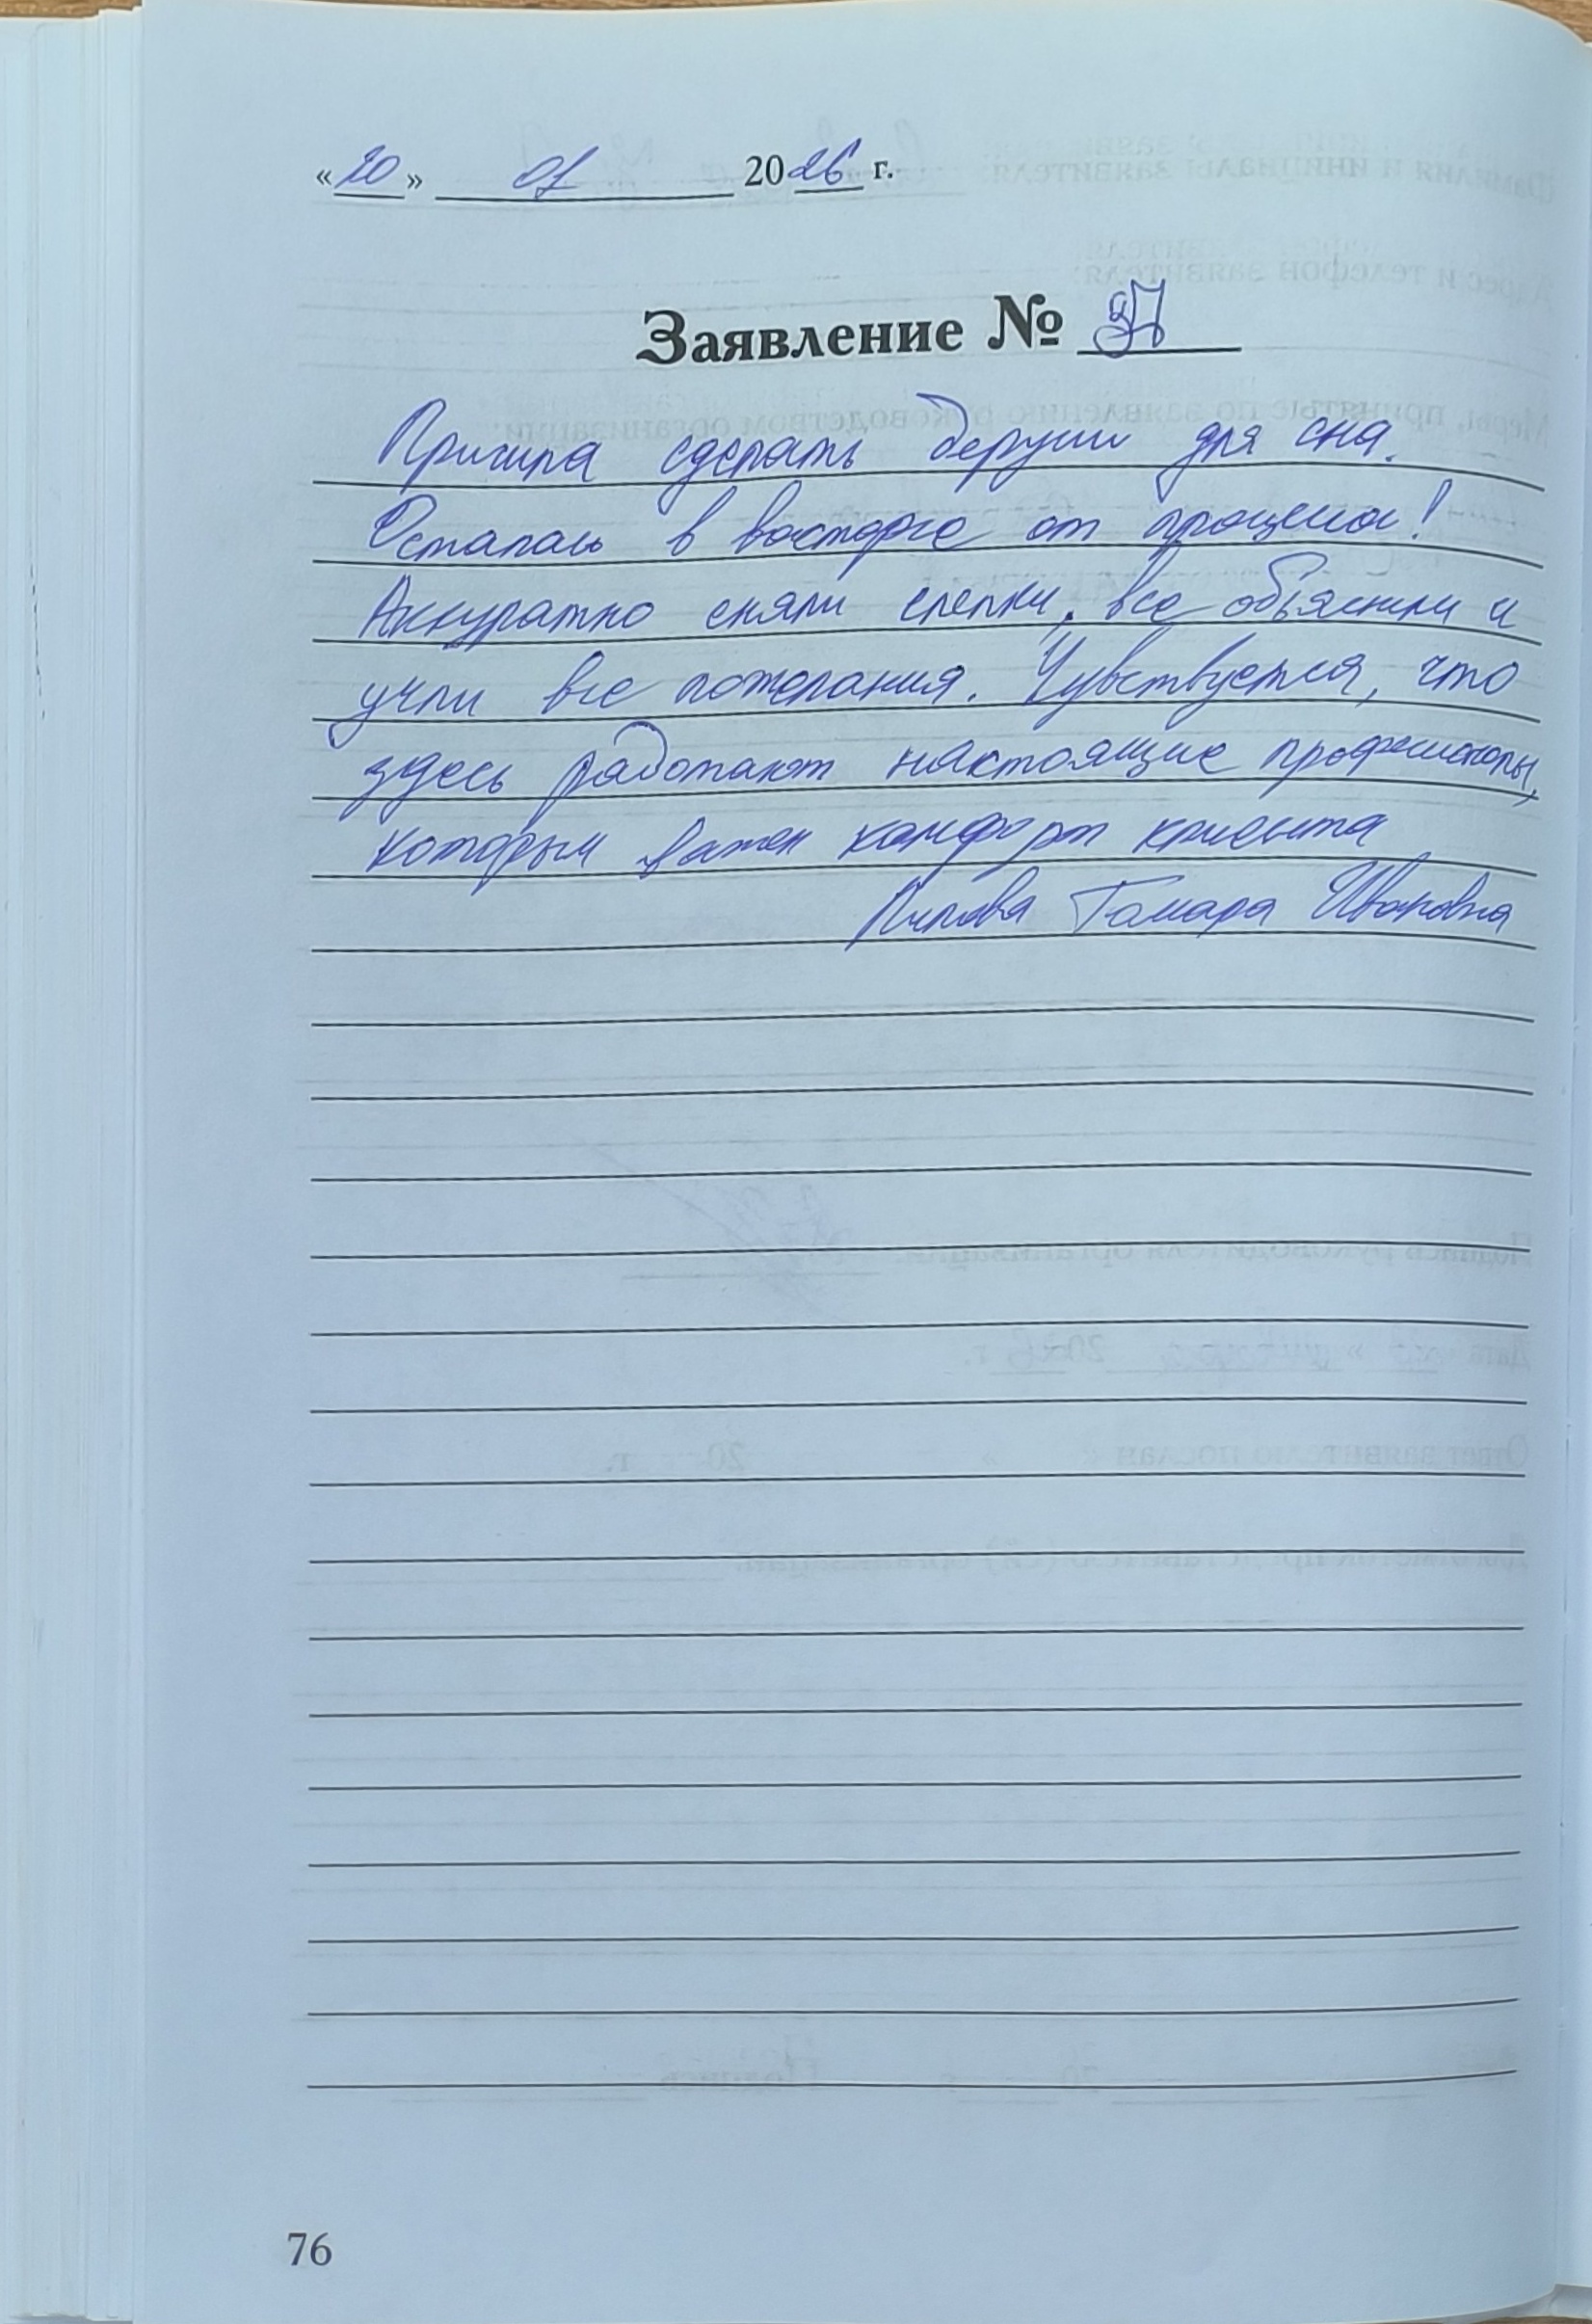 «20» 01 2026 г.
Заявление № 37
Пришла сделать беруши для сна.
Осталась в восторге от процесса!
Аккуратно сняли слепки, все объяснили и
учли все пожелания. Чувствуется, что
здесь работают настоящие профессионалы,
которым важен комфорт клиента
Тамара Ивановна
76